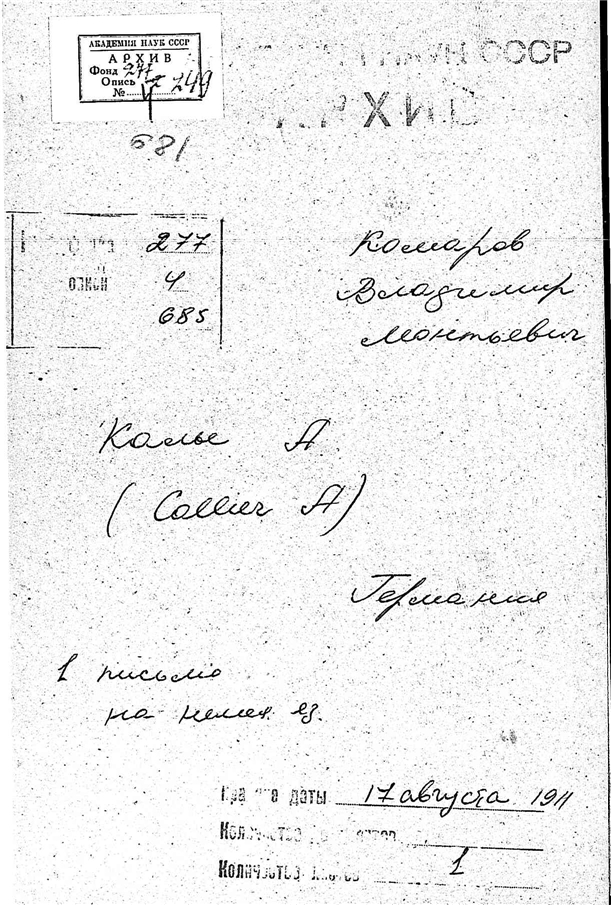 АКАДЕМИЯ НАУК СССР
АРХИВ
Фонд 277
Опись
№ 249
НАУК СССР
АРХИВ
681
277
опись 4
685
Комаров
Владимир
Леонтьевич
Калье А
(Collier A)
Германия
1 письмо
на немец. яз.
Крайние даты 17 августа 1911
Количество
Количество листов 1